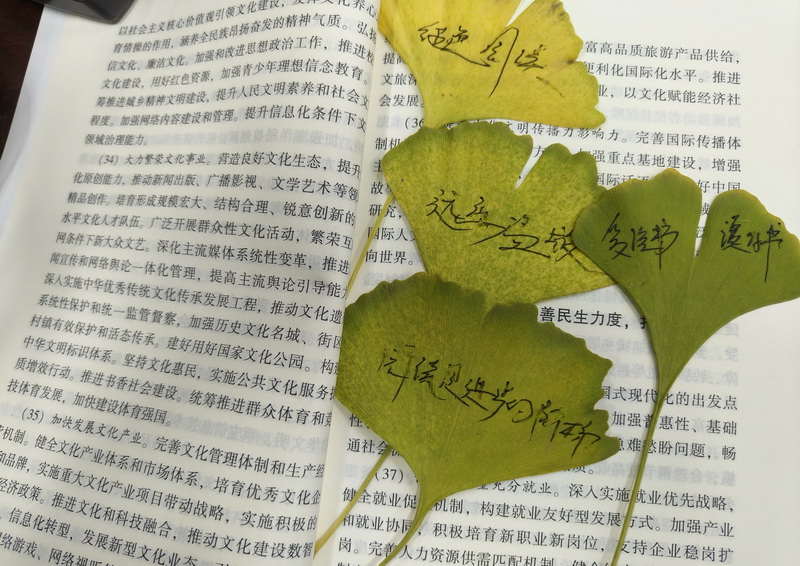 以社会主义核心价值观引领文化建设，
育情操的作用，涵养全民族昂扬奋发的精神气质。弘扬
信文化、廉洁文化。加强和改进思想政治工作，推进
文化建设，用好红色资源，加强青少年理想信念教育。
筹推进城乡精神文明建设，提升人民文明素养和社会文
程度。加强网络内容建设和管理。提升信息化条件下文
领域治理能力。
(34) 大力繁荣文化事业。营造良好文化生态，提升
化原创能力，推动新闻出版、广播影视、文学艺术等领
精品创作。培育形成规模宏大、结构合理、锐意创新的
水平文化人才队伍。广泛开展群众性文化活动，繁荣互
网条件下新大众文艺。深化主流媒体系统性变革，推进
闻宣传和网络舆论一体化管理，提高主流舆论引导能
深入实施中华优秀传统文化传承发展工程，推动文化遗
系统性保护和统一监管督察，加强历史文化名城、街区
村镇有效保护和活态传承。建好用好国家文化公园。构
中华文明标识体系。坚持文化惠民，实施公共文化服务
质增效行动。推进书香社会建设。统筹推进群众体育和
技体育发展，加快建设体育强国。
(35) 加快发展文化产业。完善文化管理体制和生产经
机制。健全文化产业体系和市场体系，培育优秀文化企
和品牌，实施重大文化产业项目带动战略，实施积极的
经济政策。推进文化和科技融合，推动文化建设数智
信息化转型，发展新型文化业态。
络游戏、网络视听
富高品质旅游产品供给，
便利化国际化水平。推进
文旅深
，以文化赋能经济社
会发展
(36)
文明传播力影响力。完善国际传播体
制机
加强重点基地建设，增强
战
国际
好中国
研究，
国际人文
向世界。
善民生力度，
多读书 读好书
国式现代化的出发点
加强普惠性、基础
性、
急难愁盼问题，畅
通社会
(37)
充分就业。深入实施就业优先战略，
健全就业促
机制，构建就业友好型发展方式。加强产业
和就业协同，积极培育新职业新岗位，支持企业稳岗扩
岗。完善人力资源供需匹配机制，